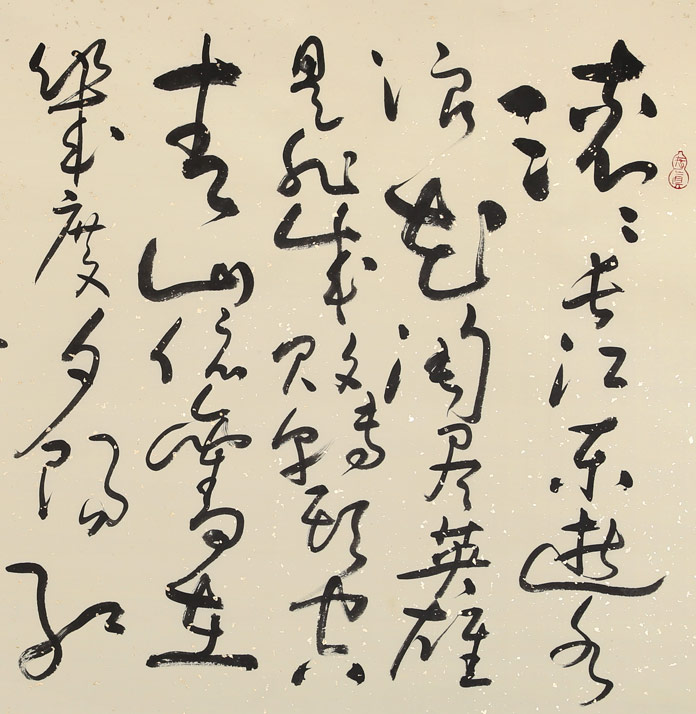 滚〻长江东逝水
浪花淘尽英雄
是非成败转頭空
青山依舊在
幾度夕陽红